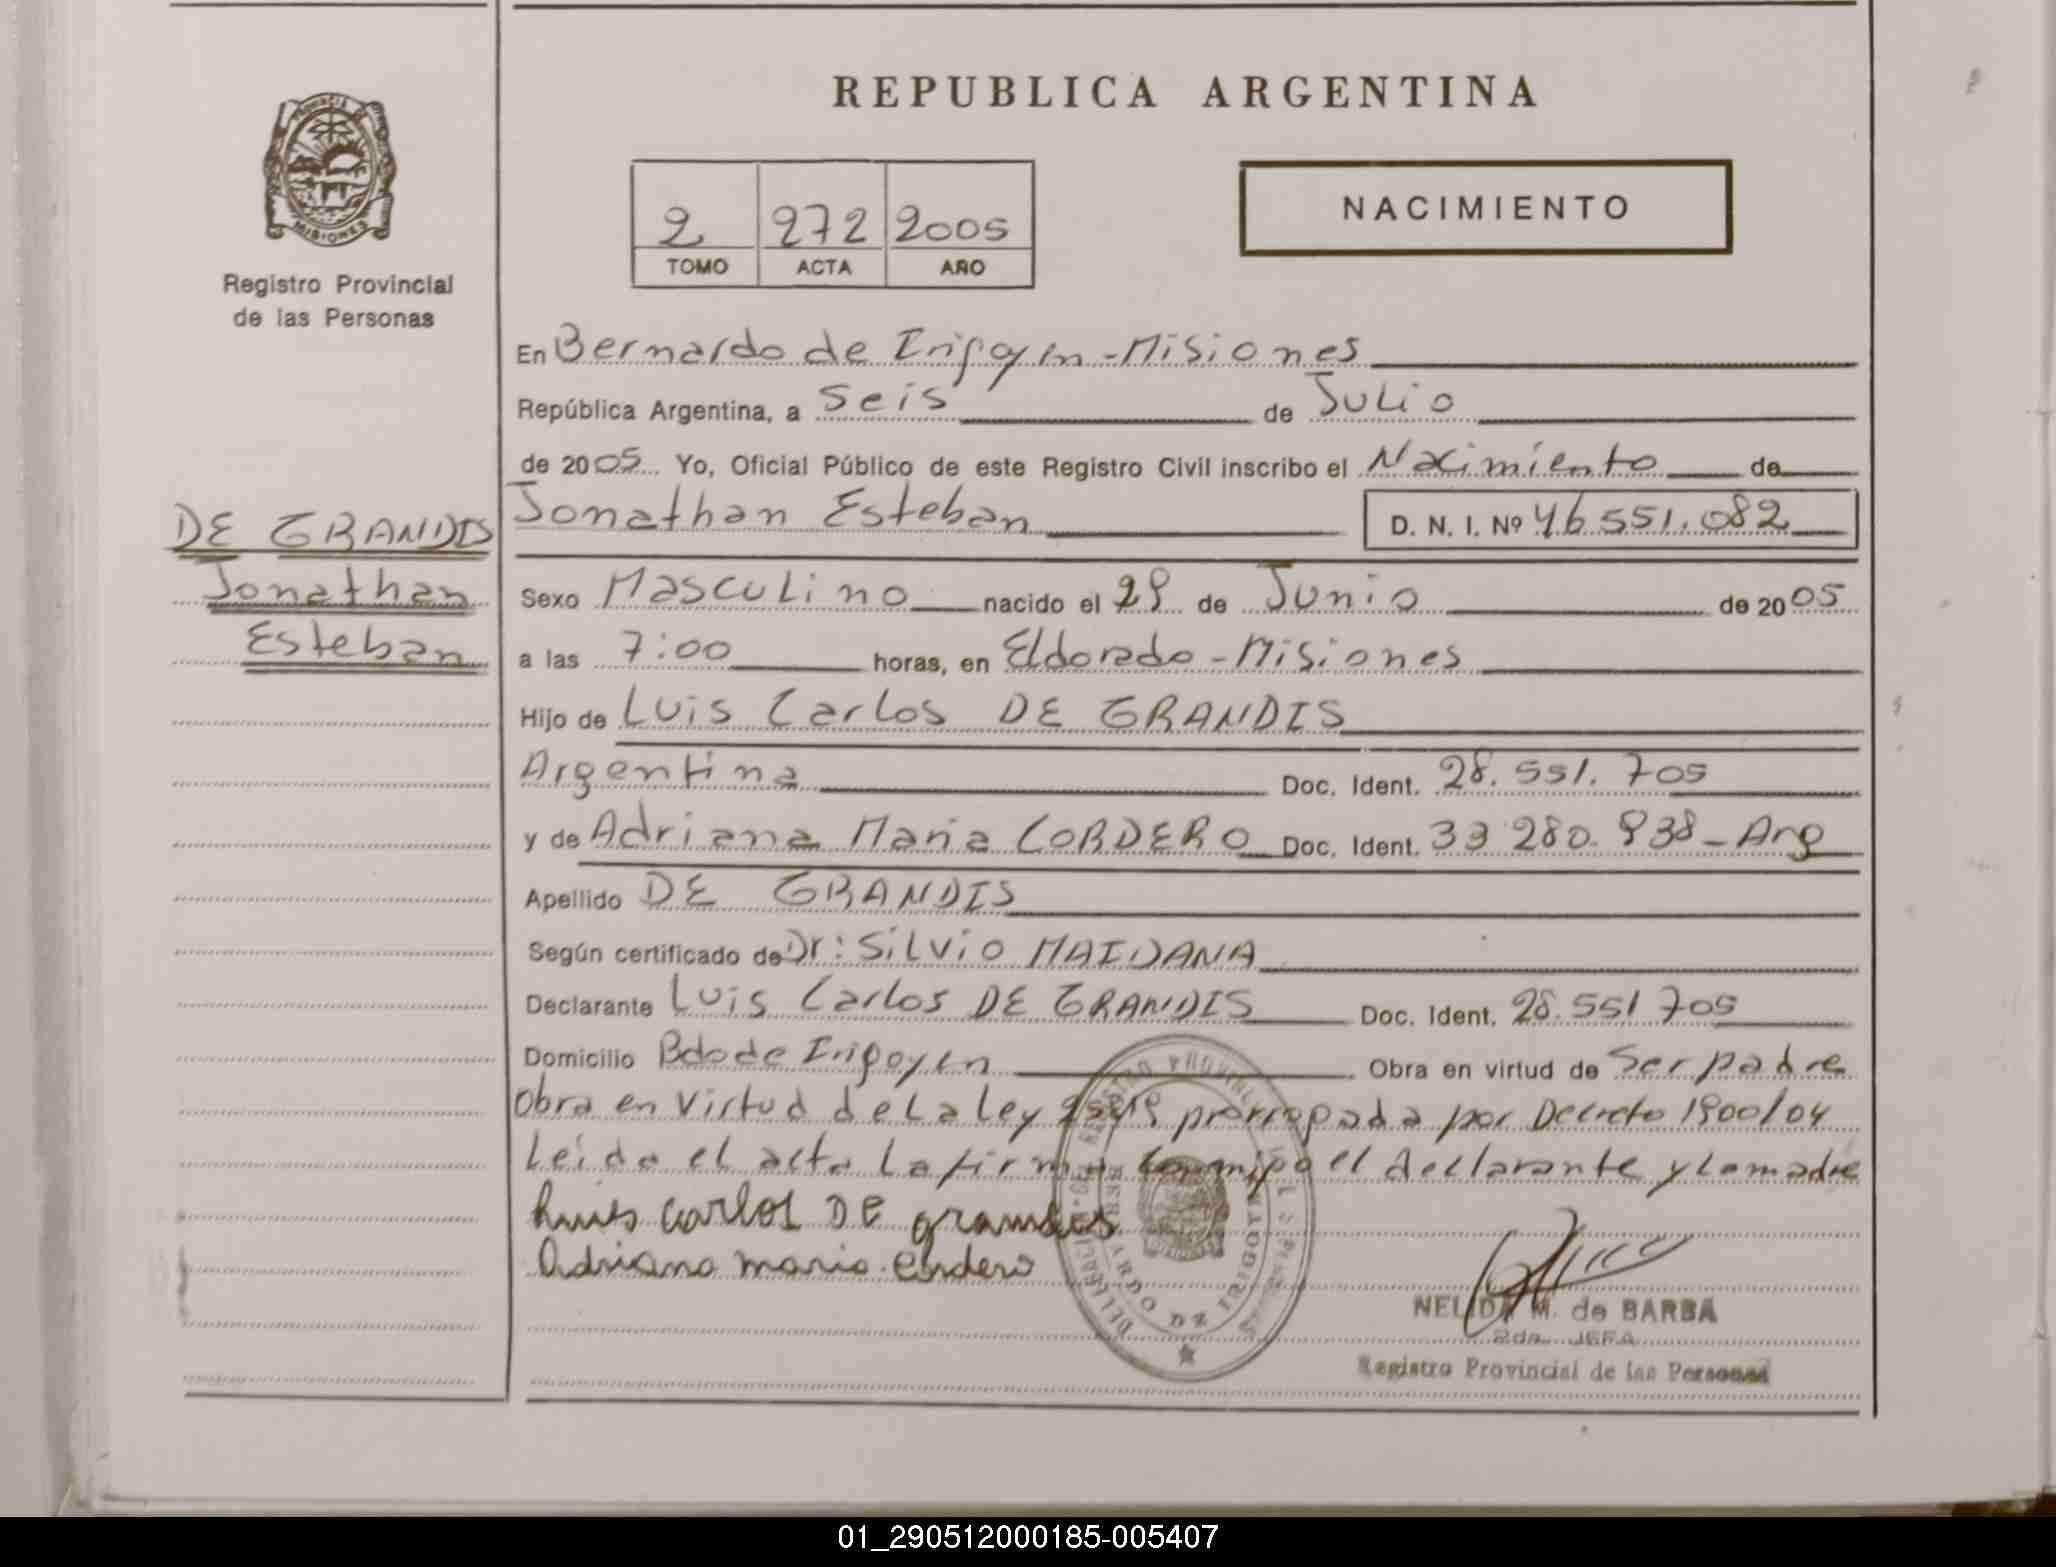 REPUBLICA ARGENTINA
PROVINCIA
MISIONES
Registro Provincial
de las Personas
2 272 2005
TOMO ACTA AÑO
NACIMIENTO
En Bernardo de Irigoyen - Misiones
República Argentina, a Seis de Julio
de 2005 Yo, Oficial Público de este Registro Civil inscribo el Nacimiento de
DE GRANDIS
Jonathan
Esteban
Jonathan Esteban D. N. I. Nº 46 551.082
Sexo Masculino nacido el 29 de Junio de 2005
a las 7:00 horas, en Eldorado - Misiones
Hijo de Luis Carlos DE GRANDIS
Argentina Doc. Ident. 28.551.705
y de Adriana Maria CORDERO Doc. Ident. 33 280.938 - Arg
Apellido DE GRANDIS
Según certificado de Dr: Silvio MAIDANA
Declarante Luis Carlos DE GRANDIS Doc. Ident. 28.551 705
Domicilio Bdo de Irigoyen Obra en virtud de Ser padre
Obra en virtud de la ley prorrogada por Decreto 1900/04
Leida el acta la firma conmigo el declarante y la madre
Luis carlos DE grandis
Adriana maria cordero
REGISTRO PROVINCIAL DE LAS PERSONAS
DELEGACION
BERNARDO DE IRIGOYEN
NELIDA M. de BARBA
2da. JEFA
Registro Provincial de las Personas
01_290512000185-005407